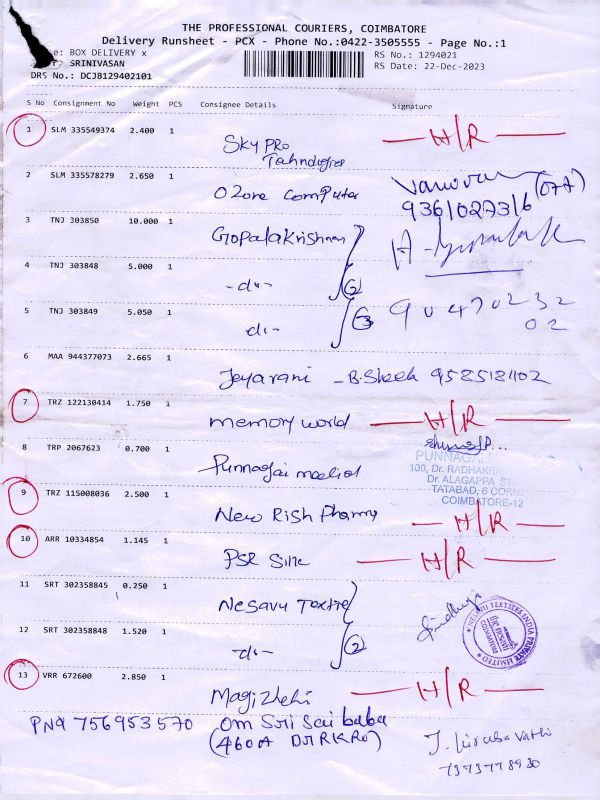 THE PROFESSIONAL COURIERS, COIMBATORE
Delivery Runsheet - PCX - Phone No.:0422-3505555 - Page No.:1
: BOX DELIVERY x
RS No.: 1294021
SRINIVASAN
RS Date: 22-Dec-2023
DRS No.: DCJB129402101
S No Consignment No Weight PCS Consignee Details Signature
1 SLM 335549374 2.400 1 SKY PRO H/R
2 SLM 335578279 2.650 1 Ozone Computer
9361027316
3 TNJ 303850 10.000 1 Gopalakrishnan
4 TNJ 303848 5.000 1 -do- 2
5 TNJ 303849 5.050 1 do- 3 90470232
02
6 MAA 944377073 2.665 1 Jeyarani
7 TRZ 122130414 1.750 1 memory world H/R
8 TRP 2067623 0.700 1 Punnagai medical
PUNNAGAI
100, Dr. RADHAKRIS
Dr. ALAGAPPA
TATABAD, 6 CORNE
COIMBATORE-12
9 TRZ 115008036 2.500 1 New Rish Pharma H/R
10 ARR 10334854 1.145 1 PSR H/R
11 SRT 302358845 0.250 1 Nesavu Textile
12 SRT 302358848 1.520 1 -do- 2
NESAVU TEXTILES INDIA PRIVATE LIMITED
13 VRR 672600 2.850 1 H/R
PNQ 756953570 Om Sri Sai baba
7373778930